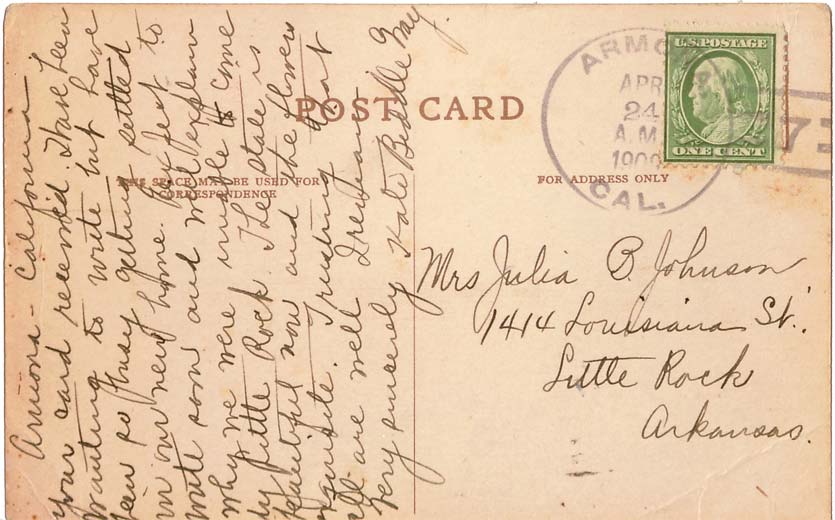 Armona - California
Your card received. Have been
wanting to write but have
been so busy getting settled
in our new home. to
write soon and will explain
why we were unable to come
by Little Rock. The state is
beautiful now and the flowers
exquisite. Trusting that
all are well I remain
Very sincerely Kate Biddle Way.
POST CARD
THIS SPACE MAY BE USED FOR
CORRESPONDENCE
FOR ADDRESS ONLY
ARMO
APR
24
A.M.
1909
CAL.
U.S. POSTAGE
ONE CENT
Mrs Julia B. Johnson
1414 Louisiana St.
Little Rock
Arkansas.